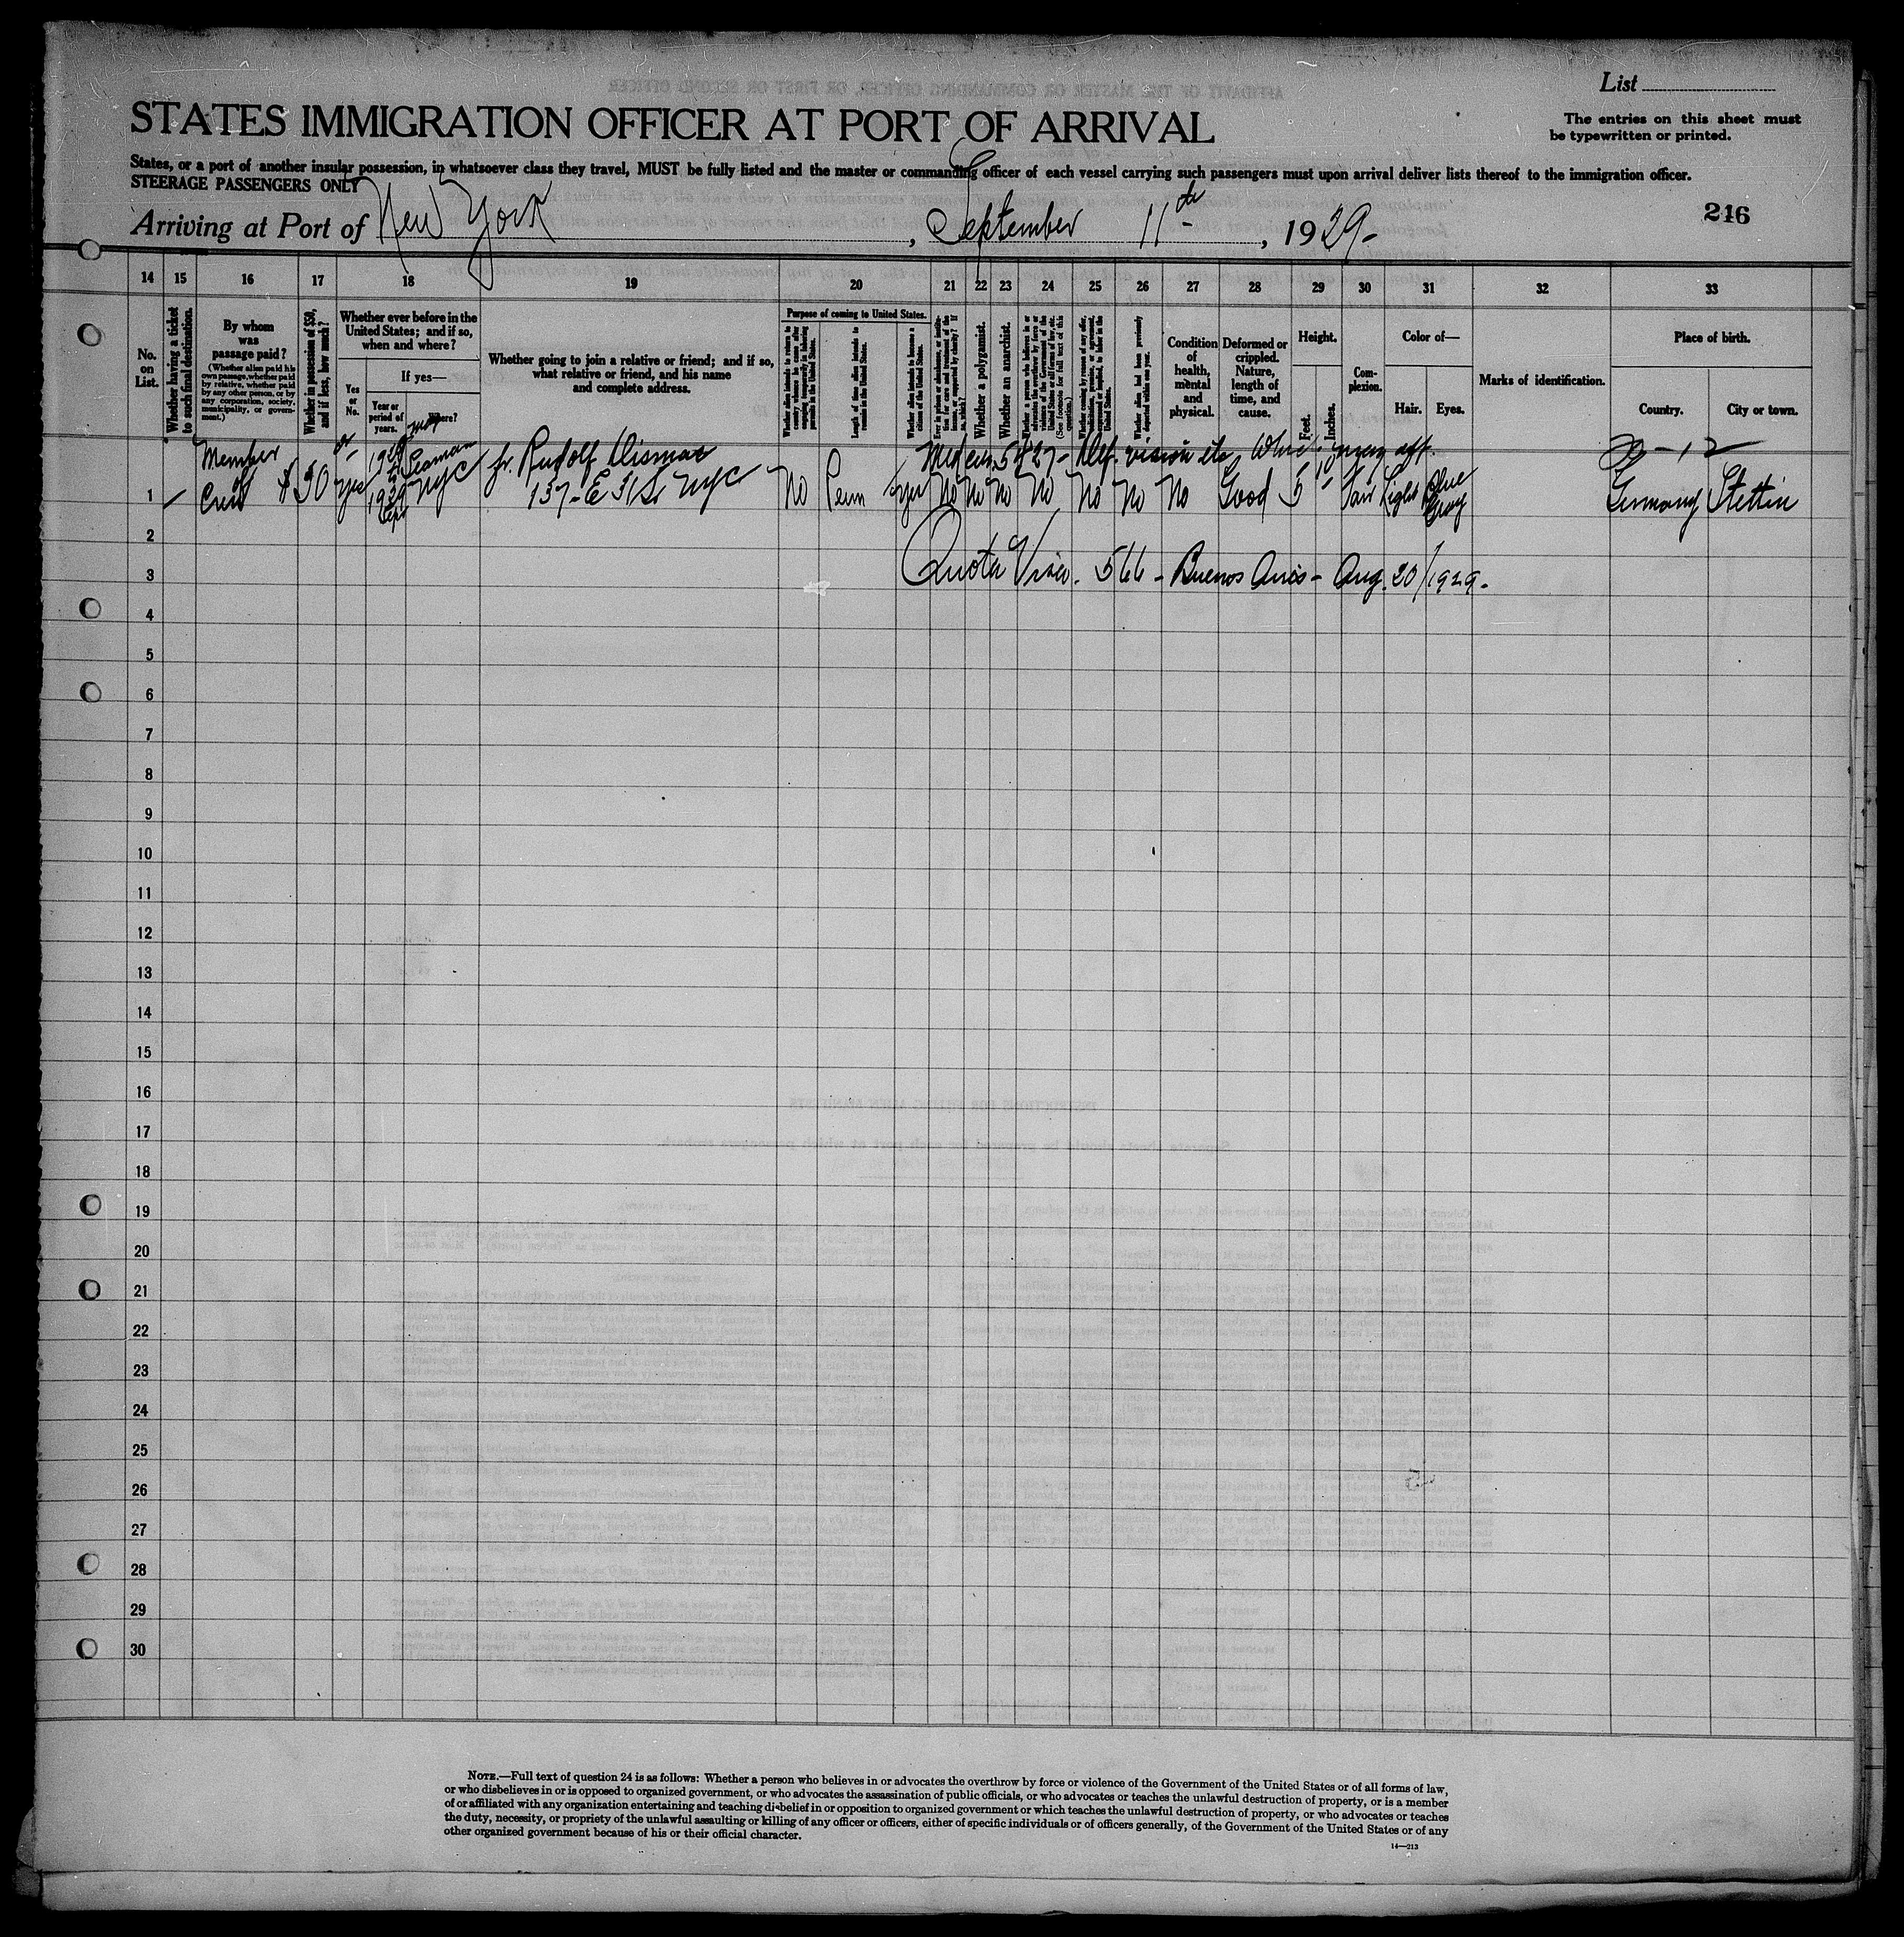 List
STATES IMMIGRATION OFFICER AT PORT OF ARRIVAL
The entries on this sheet must
be typewritten or printed.
States, or a port of another insular possession, in whatsoever class they travel, MUST be fully listed and the master or commanding officer of each vessel carrying such passengers must upon arrival deliver lists thereof to the immigration officer.
STEERAGE PASSENGERS ONLY
Arriving at Port of New York, September 11th, 1929-
246
14 15 16 17 18 19 20 21 22 23 24 25 26 27 28 29 30 31 32 33
No. on List.
Whether having a ticket to such final destination.
By whom was passage paid?
(Whether alien paid his own passage, whether paid by relative, whether paid by any other person, or by any corporation, society, municipality, or government.)
Whether in possession of $50, and if less, how much?
Whether ever before in the United States; and if so, when and where?
Yes or No.
If yes—
Year or period of years.
Where?
Whether going to join a relative or friend; and if so, what relative or friend, and his name and complete address.
Purpose of coming to United States.
Whether alien intends to return to country whence he came after engaging temporarily in laboring pursuits in the United States.
Length of time alien intends to remain in the United States.
Whether alien intends to become a citizen of the United States.
Ever in prison or almshouse, or institution for care and treatment of the insane, or supported by charity? If so, which?
Whether a polygamist.
Whether an anarchist.
Whether a person who believes in or advocates the overthrow by force or violence of the Government of the United States or all forms of law, etc. (See footnote for full text of this question.)
Whether coming by reason of any offer, solicitation, promise, or agreement, expressed or implied, to labor in the United States.
Whether alien had been previously deported within one year.
Condition of health, mental and physical.
Deformed or crippled. Nature, length of time, and cause.
Height.
Feet. Inches.
Complexion.
Color of—
Hair. Eyes.
Marks of identification.
Place of birth.
Country. City or town.
Med cer. 5427- Def. vision
1 Member of Crew $30 yes 1929 Seaman NYC fr. Rudolf Dismar
137-E 31 St NYC No Perm yes No No No No No No No Good 5 Fair Light Blue Gray Germany Stettin
2
Quota Visa. 566 - Buenos Aires - Aug. 20/1929-
3
4
5
6
7
8
9
10
11
12
13
14
15
16
17
18
19
20
21
22
23
24
25
26
27
28
29
30
NOTE.—Full text of question 24 is as follows: Whether a person who believes in or advocates the overthrow by force or violence of the Government of the United States or of all forms of law,
or who disbelieves in or is opposed to organized government, or who advocates the assassination of public officials, or who advocates or teaches the unlawful destruction of property, or is a member
of or affiliated with any organization entertaining and teaching disbelief in or opposition to organized government or which teaches the unlawful destruction of property, or who advocates or teaches
the duty, necessity, or propriety of the unlawful assaulting or killing of any officer or officers, either of specific individuals or of officers generally, of the Government of the United States or of any
other organized government because of his or their official character.
14—213